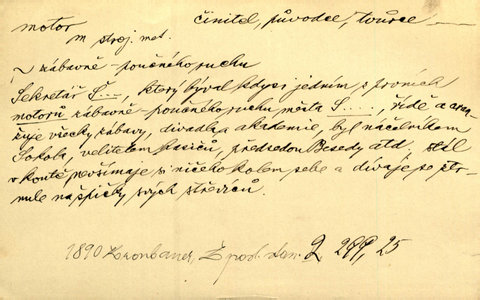 motor činitel, původce, tvůrce
m stroj. met.
~ zábavně-poučného ruchu
Sekretář S..., který býval kdysi jedním z prvních
motorů zábavně-poučného ruchu města S...., řídě a aran-
žuje všecky zábavy, divadla a akademie, byl náčelníkem
Sokola, velitelem hasičů, předsedou Besedy atd., stál
v koutě, nevšímaje si ničeho kolem sebe a dívaje se str-
nule na špičky svých střevíců.
1890 Kronbauer, Z pod. dom. 2 299, 25